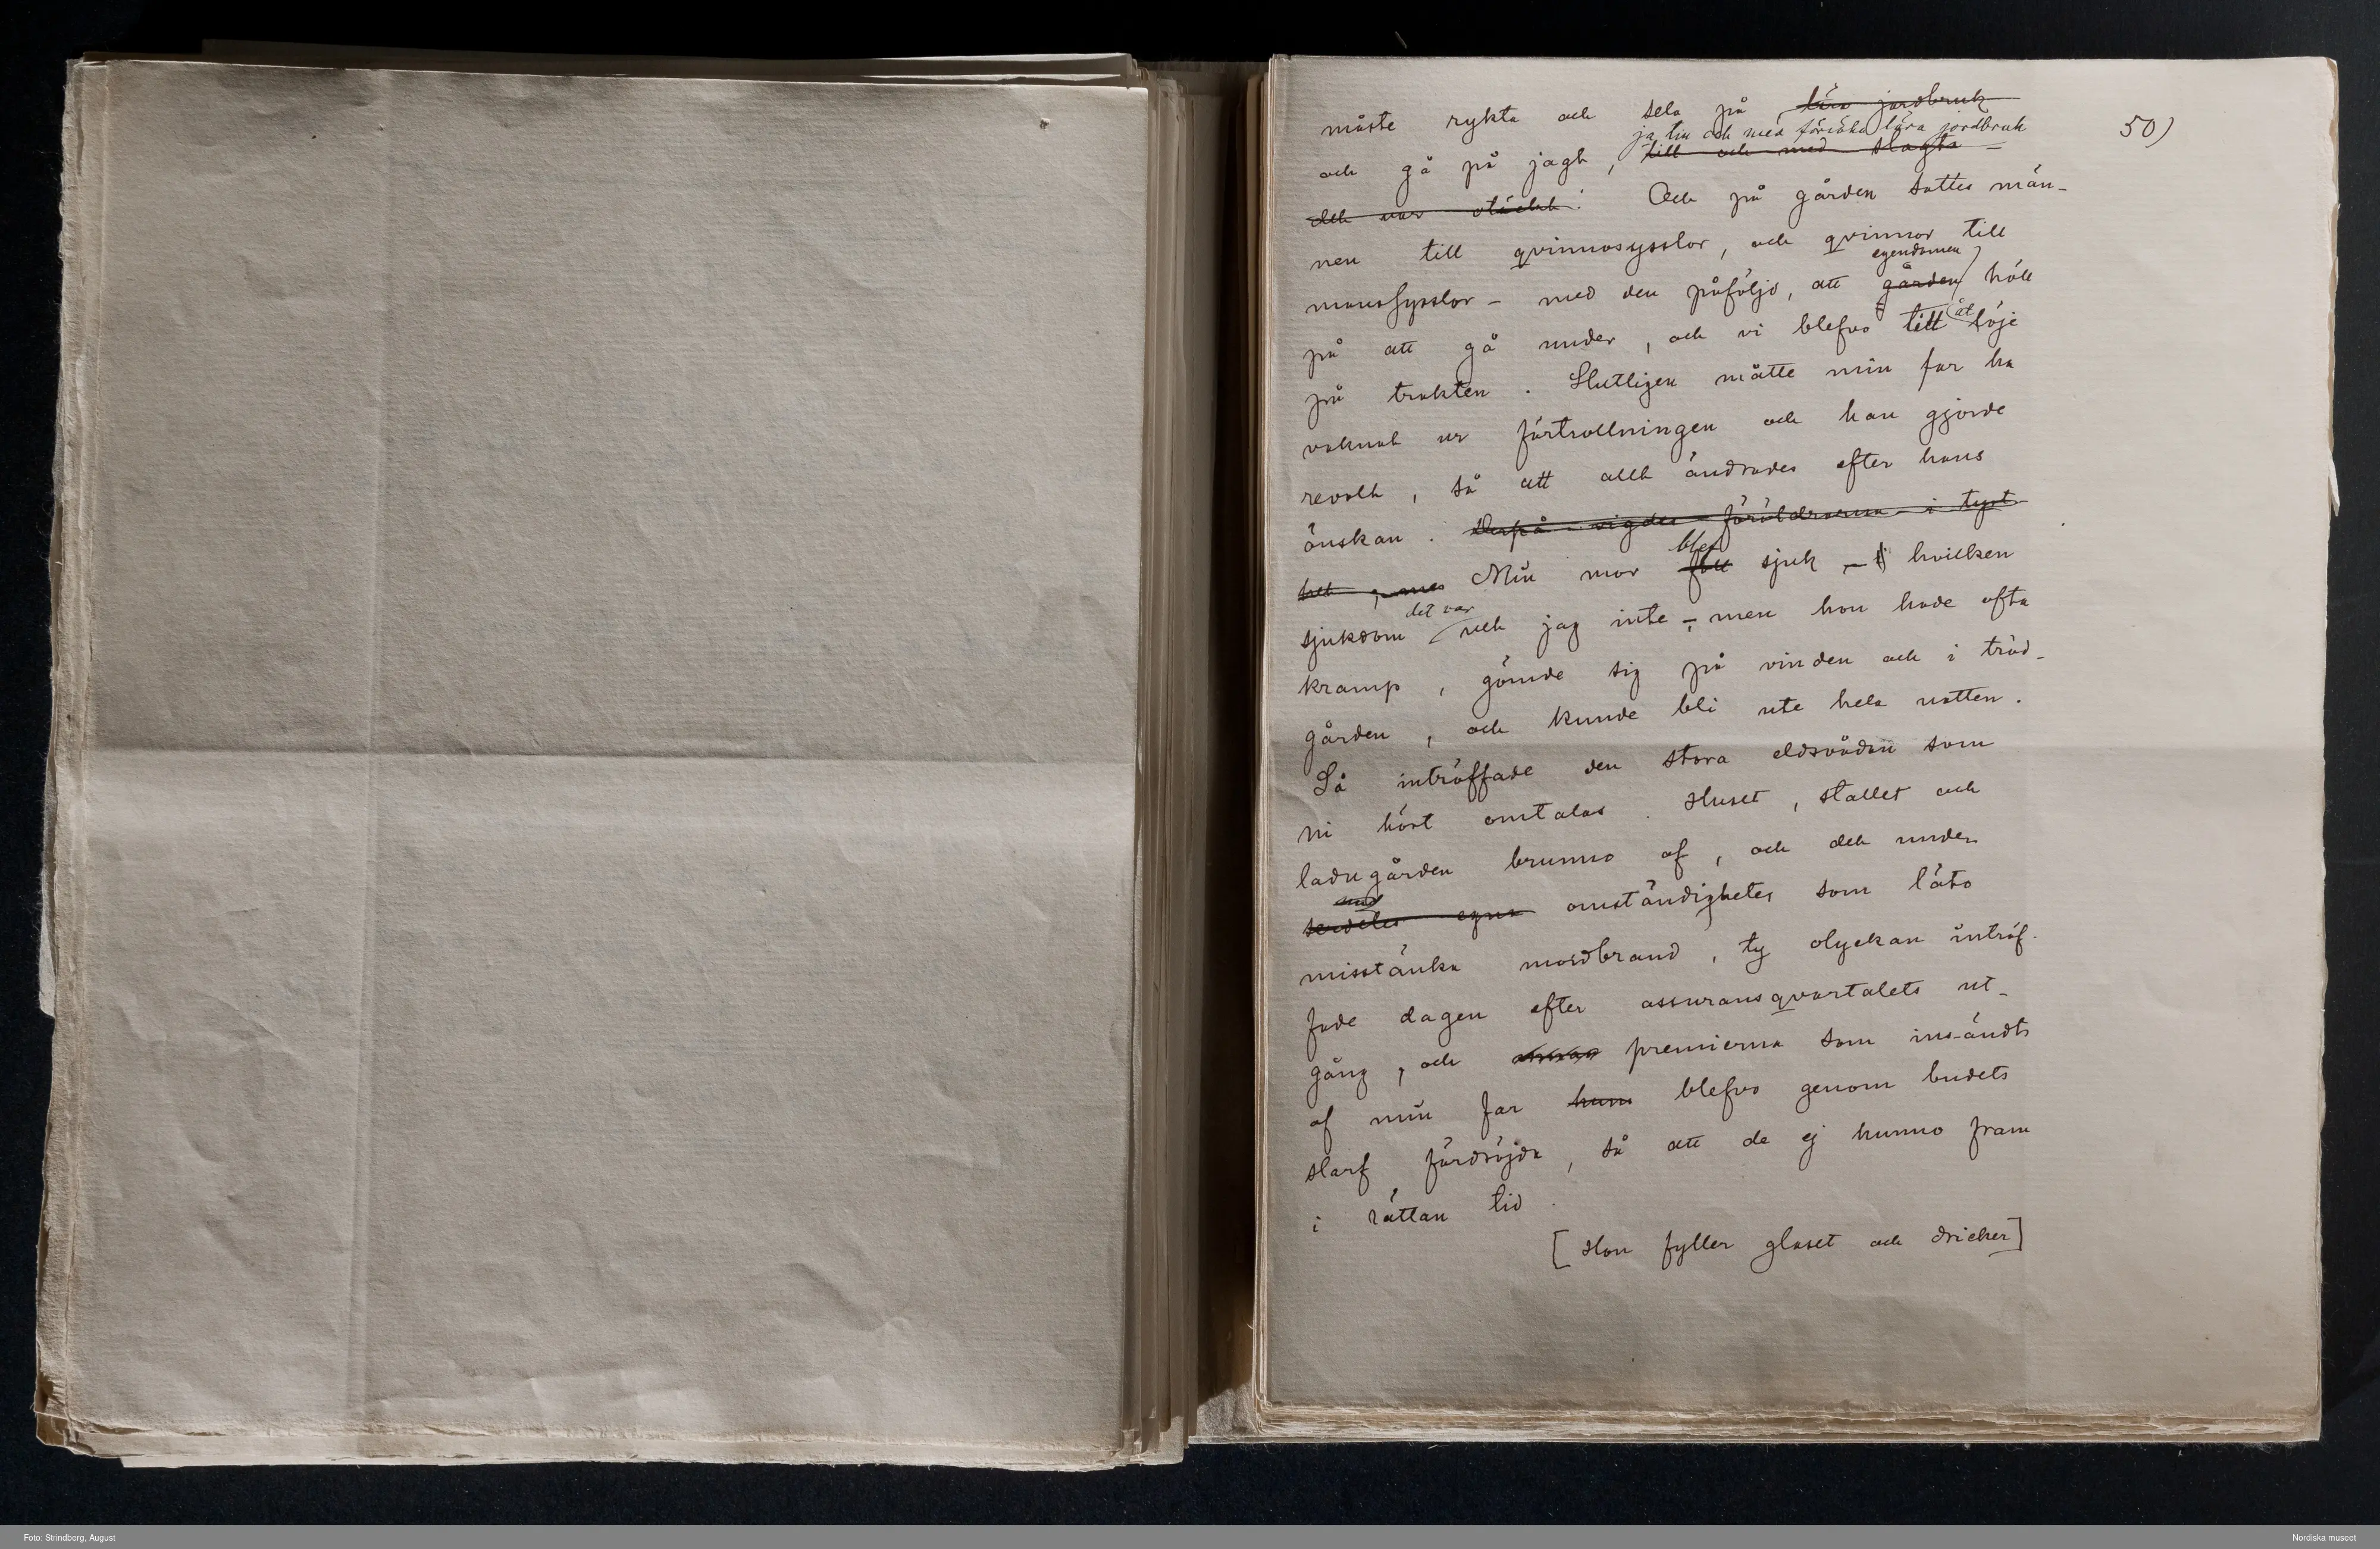 måste rykta och sela på lära jordbruk
50)
ja till och med försöka lära jordbruk
och gå på jagt, till och med slagta
det var otäckt! Och på gården sattes män-
nen till qvinnosysslor, och qvinnor till
egendomen
manssysslor – med den påföljd, att gården höll
åt
på att gå under, och vi blefvo till löje
på trakten. Slutligen måtte min far ha
vaknat ur förtrollningen och han gjorde
revolt, så att allt ändrades efter hans
önskan. Derpå vigdes föräldrarna i tyst
blef
het, Min mor föll sjuk – hvilken
det var
sjukdom vet jag inte – men hon hade ofta
kramp, gömde sig på vinden och i träd-
gården, och kunde bli ute hela natten.
Så inträffade den stora eldsvådan som
ni hört omtalas. Huset, stallet och
ladugården brunno af, och det under
omständigheter som läto
misstänka mordbrand, ty olyckan inträf-
fade dagen efter assuransqvartalets ut-
gång, och premierna som insändts
af min far hann blefvo genom budets
slarf fördröjda, så att de ej hunno fram
i rättan tid.
[Hon fyller glaset och dricker]
Foto: Strindberg, August
Nordiska museet